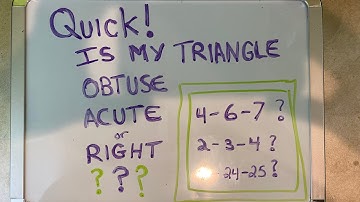 Quick!
IS MY TRIANGLE
OBTUSE
ACUTE
or
RIGHT
? ? ?
4-6-7?
2-3-4?
24-25?